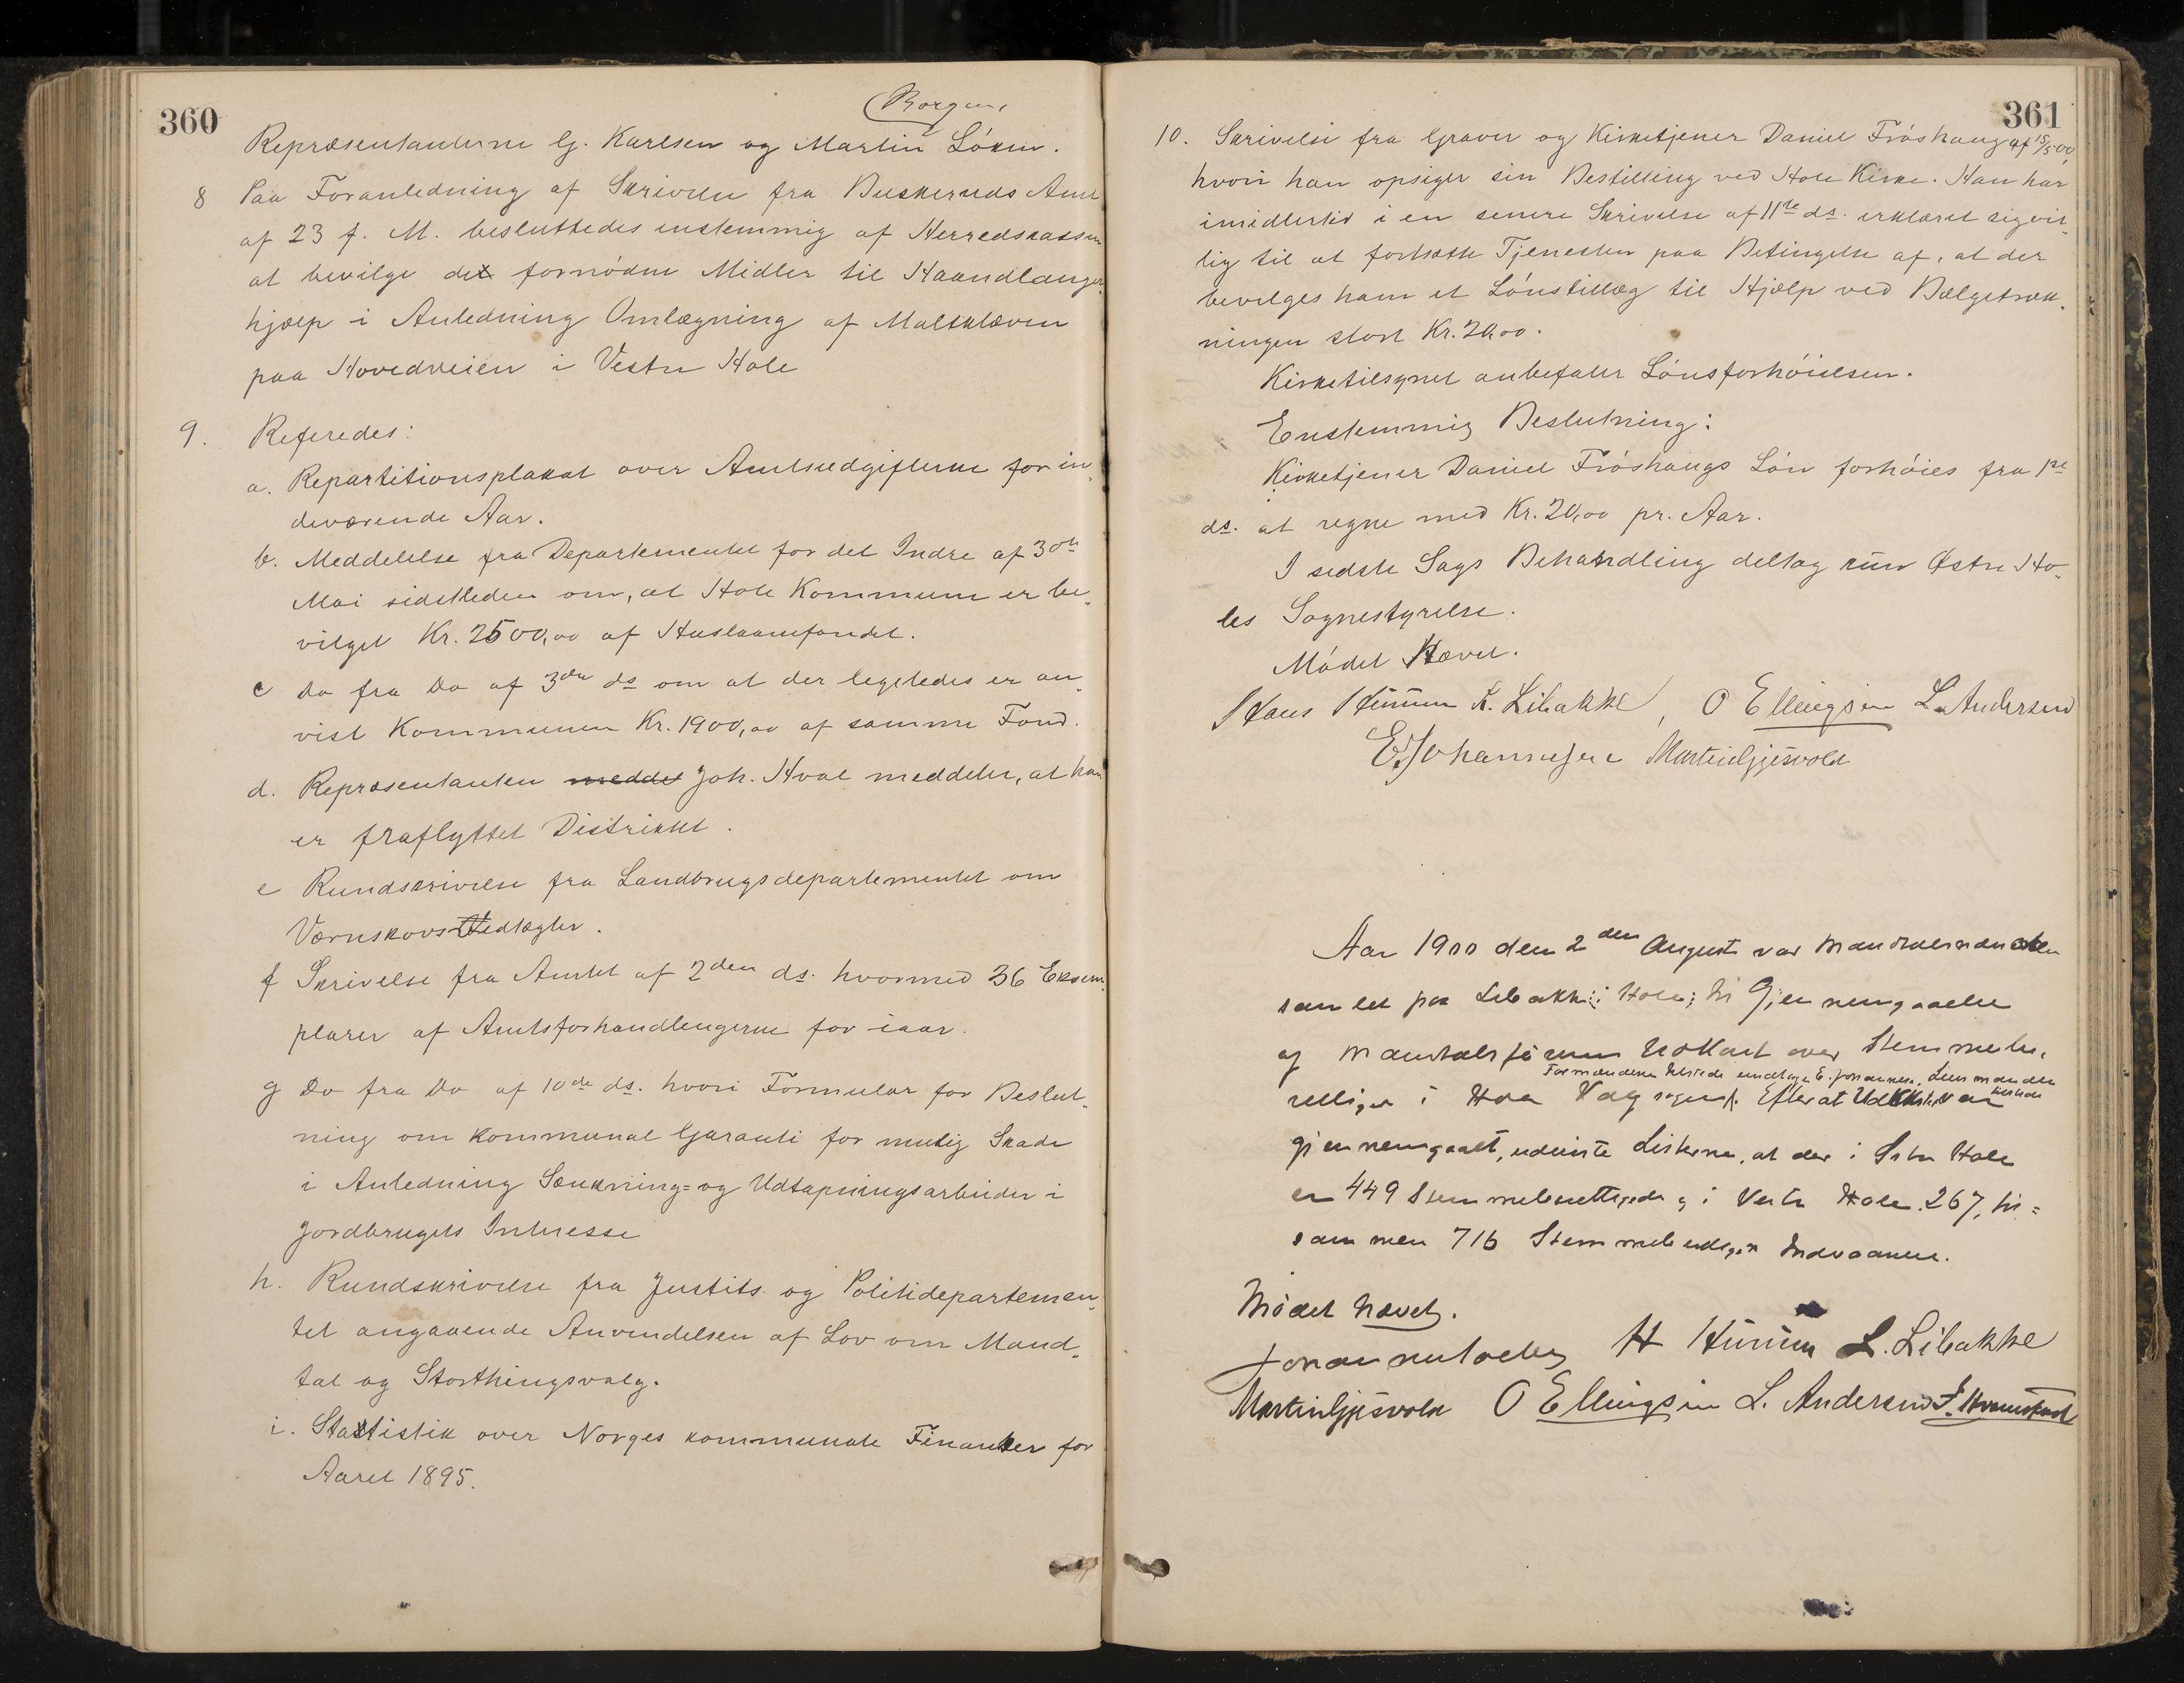 360
(Borgen,
Repræsentanterne G. Karlsen og Martin Løken.
8 Paa Foranledning af Skrivelse fra Buskeruds Amt
af 23 f. M. besluttedes enstemmig af Herredskassen
at bevilge de fornødne Midler til Haandlanger-
hjælp i Anledning Omlægning af Maltklæven
paa Hovedveien i Vestre Hole
9. Referedes:
a. Repartitionsplakat over Amtsudgifterne for in-
deværende Aar.
b. Meddelelse fra Departementet for det Indre af 30te
Mai sidstleden om, at Hole Kommune er be-
vilget Kr. 2500,00 af Huslaanefondet.
c Do fra Do af 3die ds om at der ligeledes er an-
vist Kommunen Kr. 1900,00 af samme Fond.
d. Repræsentanten meddel Joh. Hval meddeler, at han
er fraflyttet Distriktet.
e Rundskrivelse fra Landbrugsdepartementet om
Værnskovs Vedtægter.
f Skrivelse fra Amtet af 2den ds. hvormed 36 Eksem-
plarer af Amtsforhandlingerne for iaar.
g Do fra Do af 10de ds. hvori Formular for Beslut-
ning om kommunal Garanti for mulig Skade
i Anledning Sænknings- og Udtapningsarbeider i
Jordbrugets Interesse
h. Rundskrivelse fra Justits og Politidepartemen-
tet angaaende Anvendelsen af Lov om Mand-
tal og Storthingsvalg.
i. Statistik over Norges kommunale Finanser for
Aaret 1895.
361
10. Skrivelse fra Graver og Kirketjener Daniel Frøshaug af 15/5 00,
hvori han opsiger sin Bestilling ved Hole Kirke. Han har
imidlertid i en senere Skrivelse af 11te ds. erklæret sig vil-
lig til at fortsætte Tjenesten paa Betingelse af, at der
bevilges ham et Lønstillæg til Hjælp ved Bælgetræk-
ningen stort Kr. 20,00.
Kirketilsynet anbefaler Lønsforhøielsen.
Enstemmig Beslutning:
Kirketjener Daniel Frøshaugs Løn forhøies fra 1ste
ds. at regne med Kr. 20,00 pr. Aar.
I sidste Sags Behandling deltog kun Østre Ho-
les Sognestyrelse.
Mødet Hævet.
Hans Hurum L. Libakke, O Ellingsen L. Andersen
E. Johannesen Martin Gjesvold
Aar 1900 den 2den August var Mandtalsmanden
samlet paa Libakke i Hole, til Gjennemgaaelse
af Mandtalsførerens Udkast over Stemmebe-
Formanden tilstede undtagen E. Johannesen, Lensmanden
tilstede
rettigede i Hole Valgsogn. Efterat Udkastet var
gjennemgaaet, udviste Listerne, at der i Østre Hole
er 449 Stemmeberettigede og i Vestre Hole 267, til-
sammen 716 Stemmeberettigede Indvaanere.
Mødet hævet.
H Hurum L. Libakke
Martin Gjesvold O Ellingsen L. Andersen